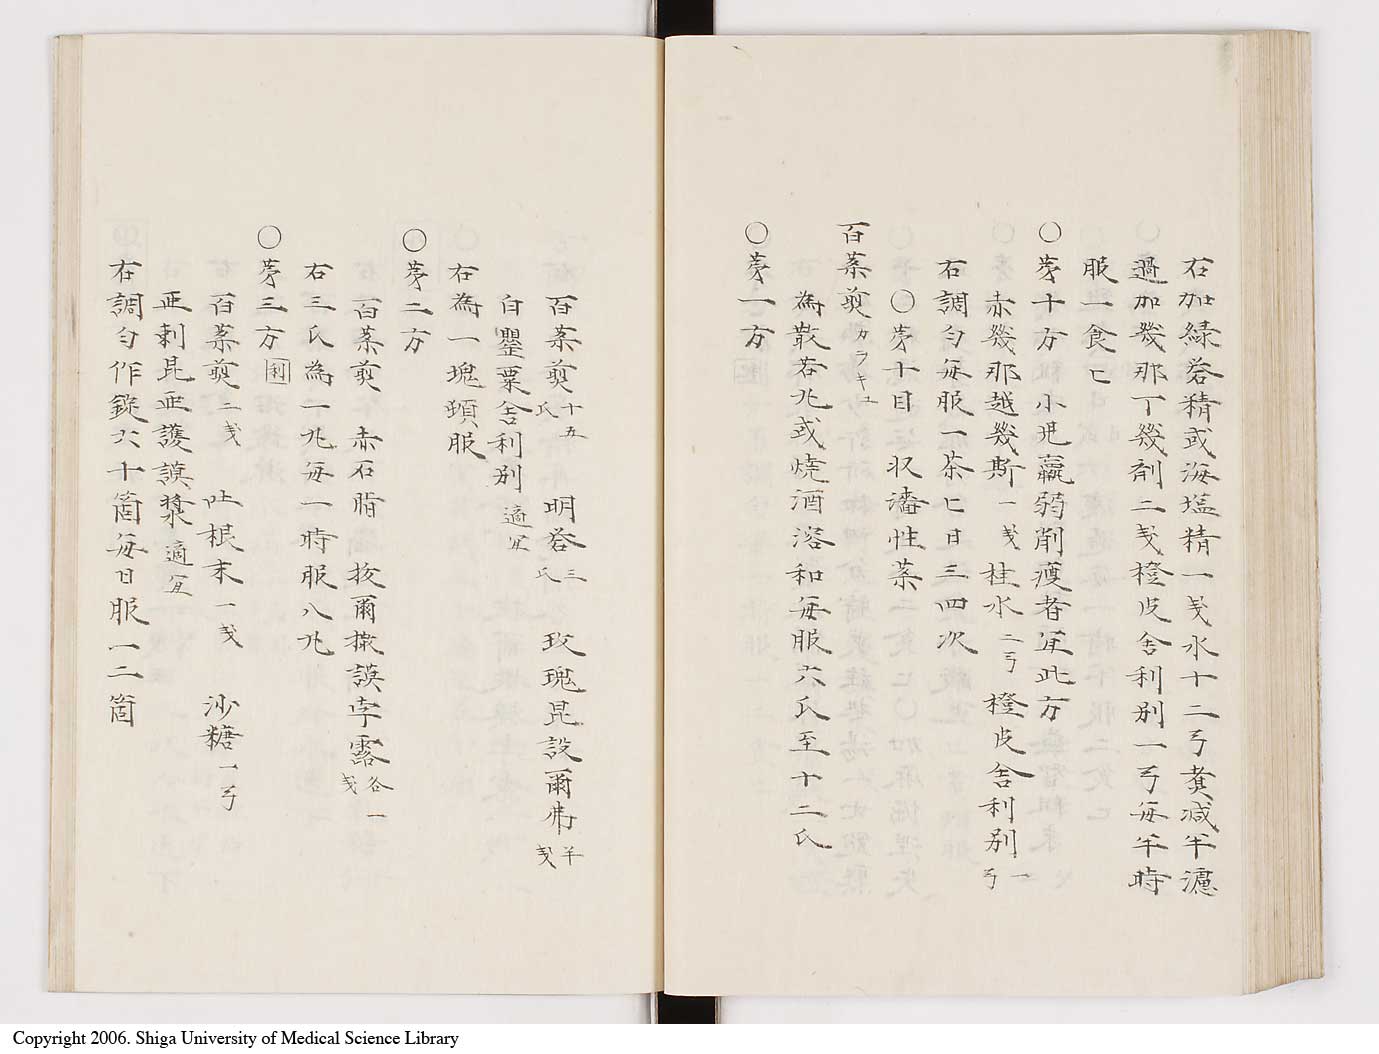 右加綠礬精或海塩精一戔水十二弓煮减半濾
過加幾那丁幾劑二戔橙皮舎利别一弓每半時
服一食匕
〇第十方 小児羸弱削瘦者宜此方
赤幾那越幾斯一戔桂水二弓橙皮舎利别一弓
右調匀每服一茶匕日三四次
百藥煎カラキユ 〇第十目 収濇性藥
為散若丸或焼酒溶和每服六氏至十二氏
〇第一方
百藥煎十五氏 明礬三氏 玫瑰昆設爾弗半戔
白罌粟舎利别適宜
右為一塊頓服
〇第二方
百藥煎 赤石脂 拔爾撒謨孛露各一戔
右三氏為一丸每一時服八丸
〇第三方 利
百藥煎二戔 吐根末一戔 沙糖一弓
亜剌昆亜護謨漿適宜
右調匀作錠六十箇每日服一二箇
Copyright 2006. Shiga University of Medical Science Library